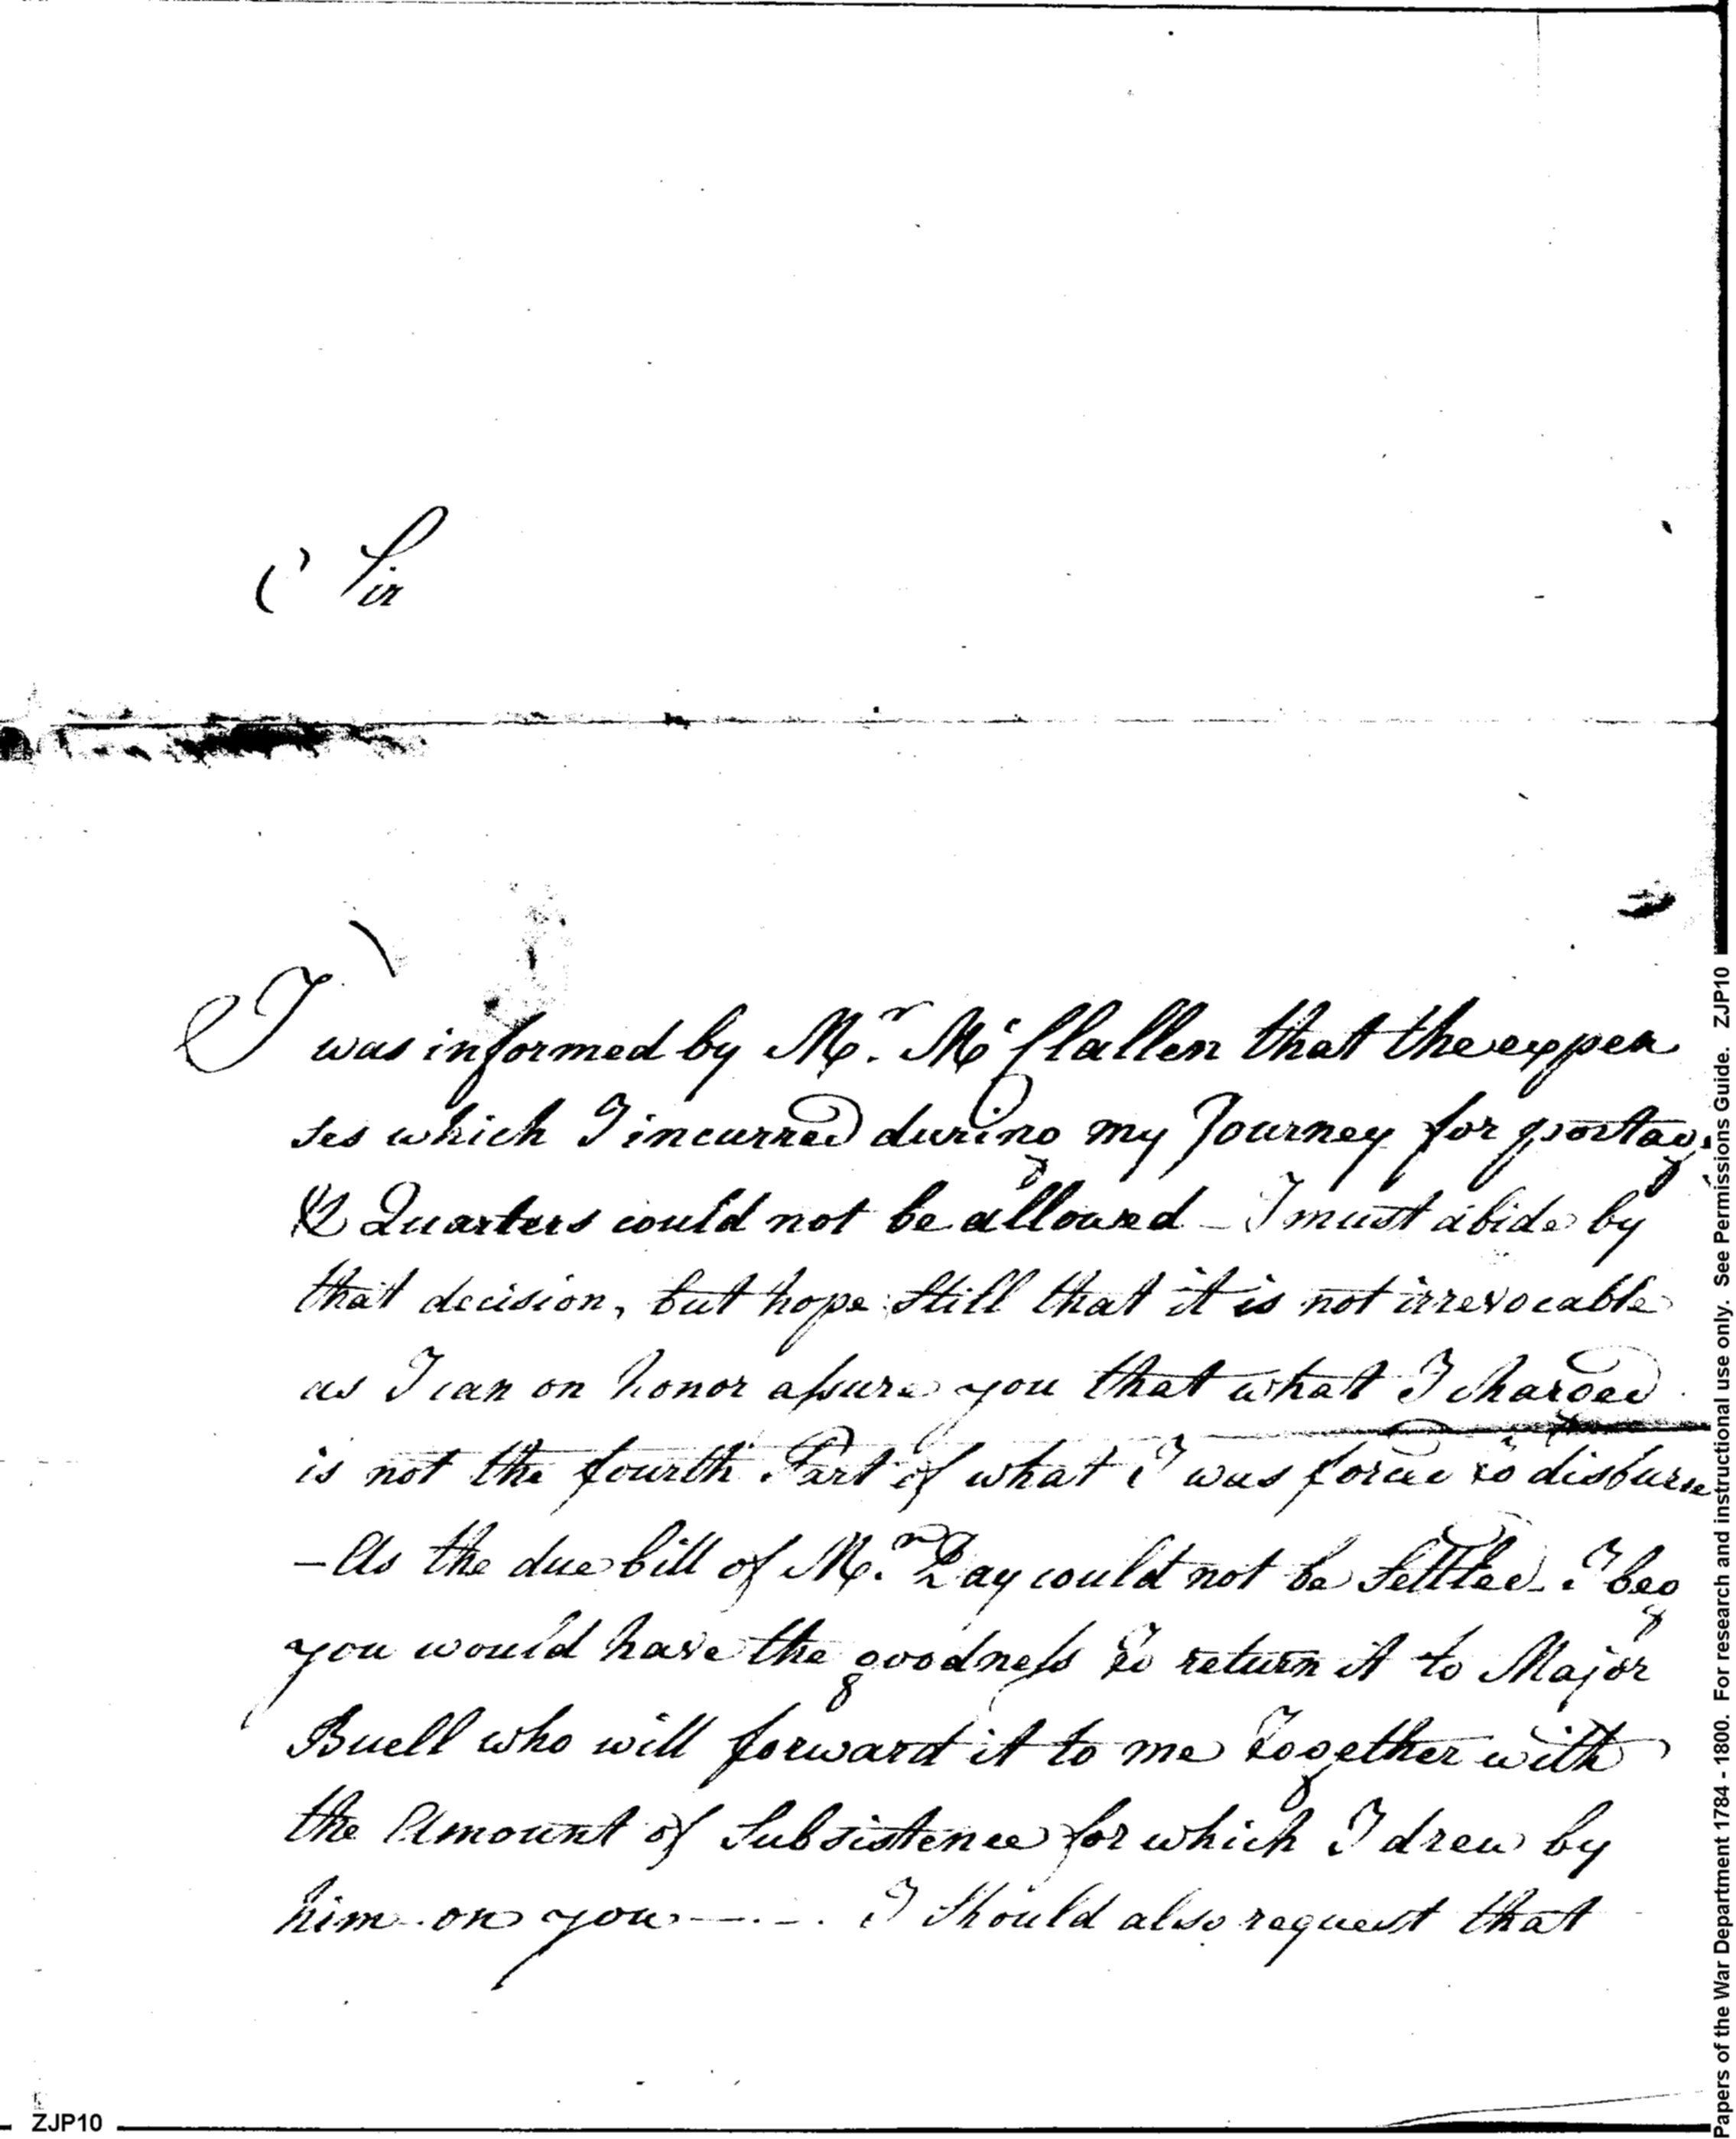 Sir
I was informed by Mr. Mc Clallen that the expen
ses which I incurred during my Journey for postag
& Quarters could not be allowed – I must abide by
that decision, but hope still that it is not irrevocable
as I can on honor assure you that what I charged
is not the fourth Part of what I was forced to disburse
– As the due bill of Mr. Ray could not be settled – I beg
you would have the goodness to return it to Major
Buell who will forward it to me together with
the Amount of Subsistence for which I drew by
him on you —.–. I should also request that
ZJP10
Papers of the War Department 1784 - 1800. For research and instructional use only. See Permissions Guide. ZJP10